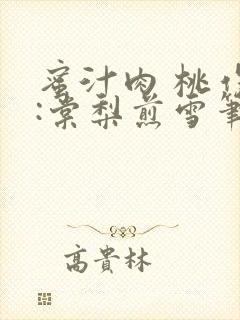 蜜汁肉桃作
:棠梨煎雪筆
高貴林